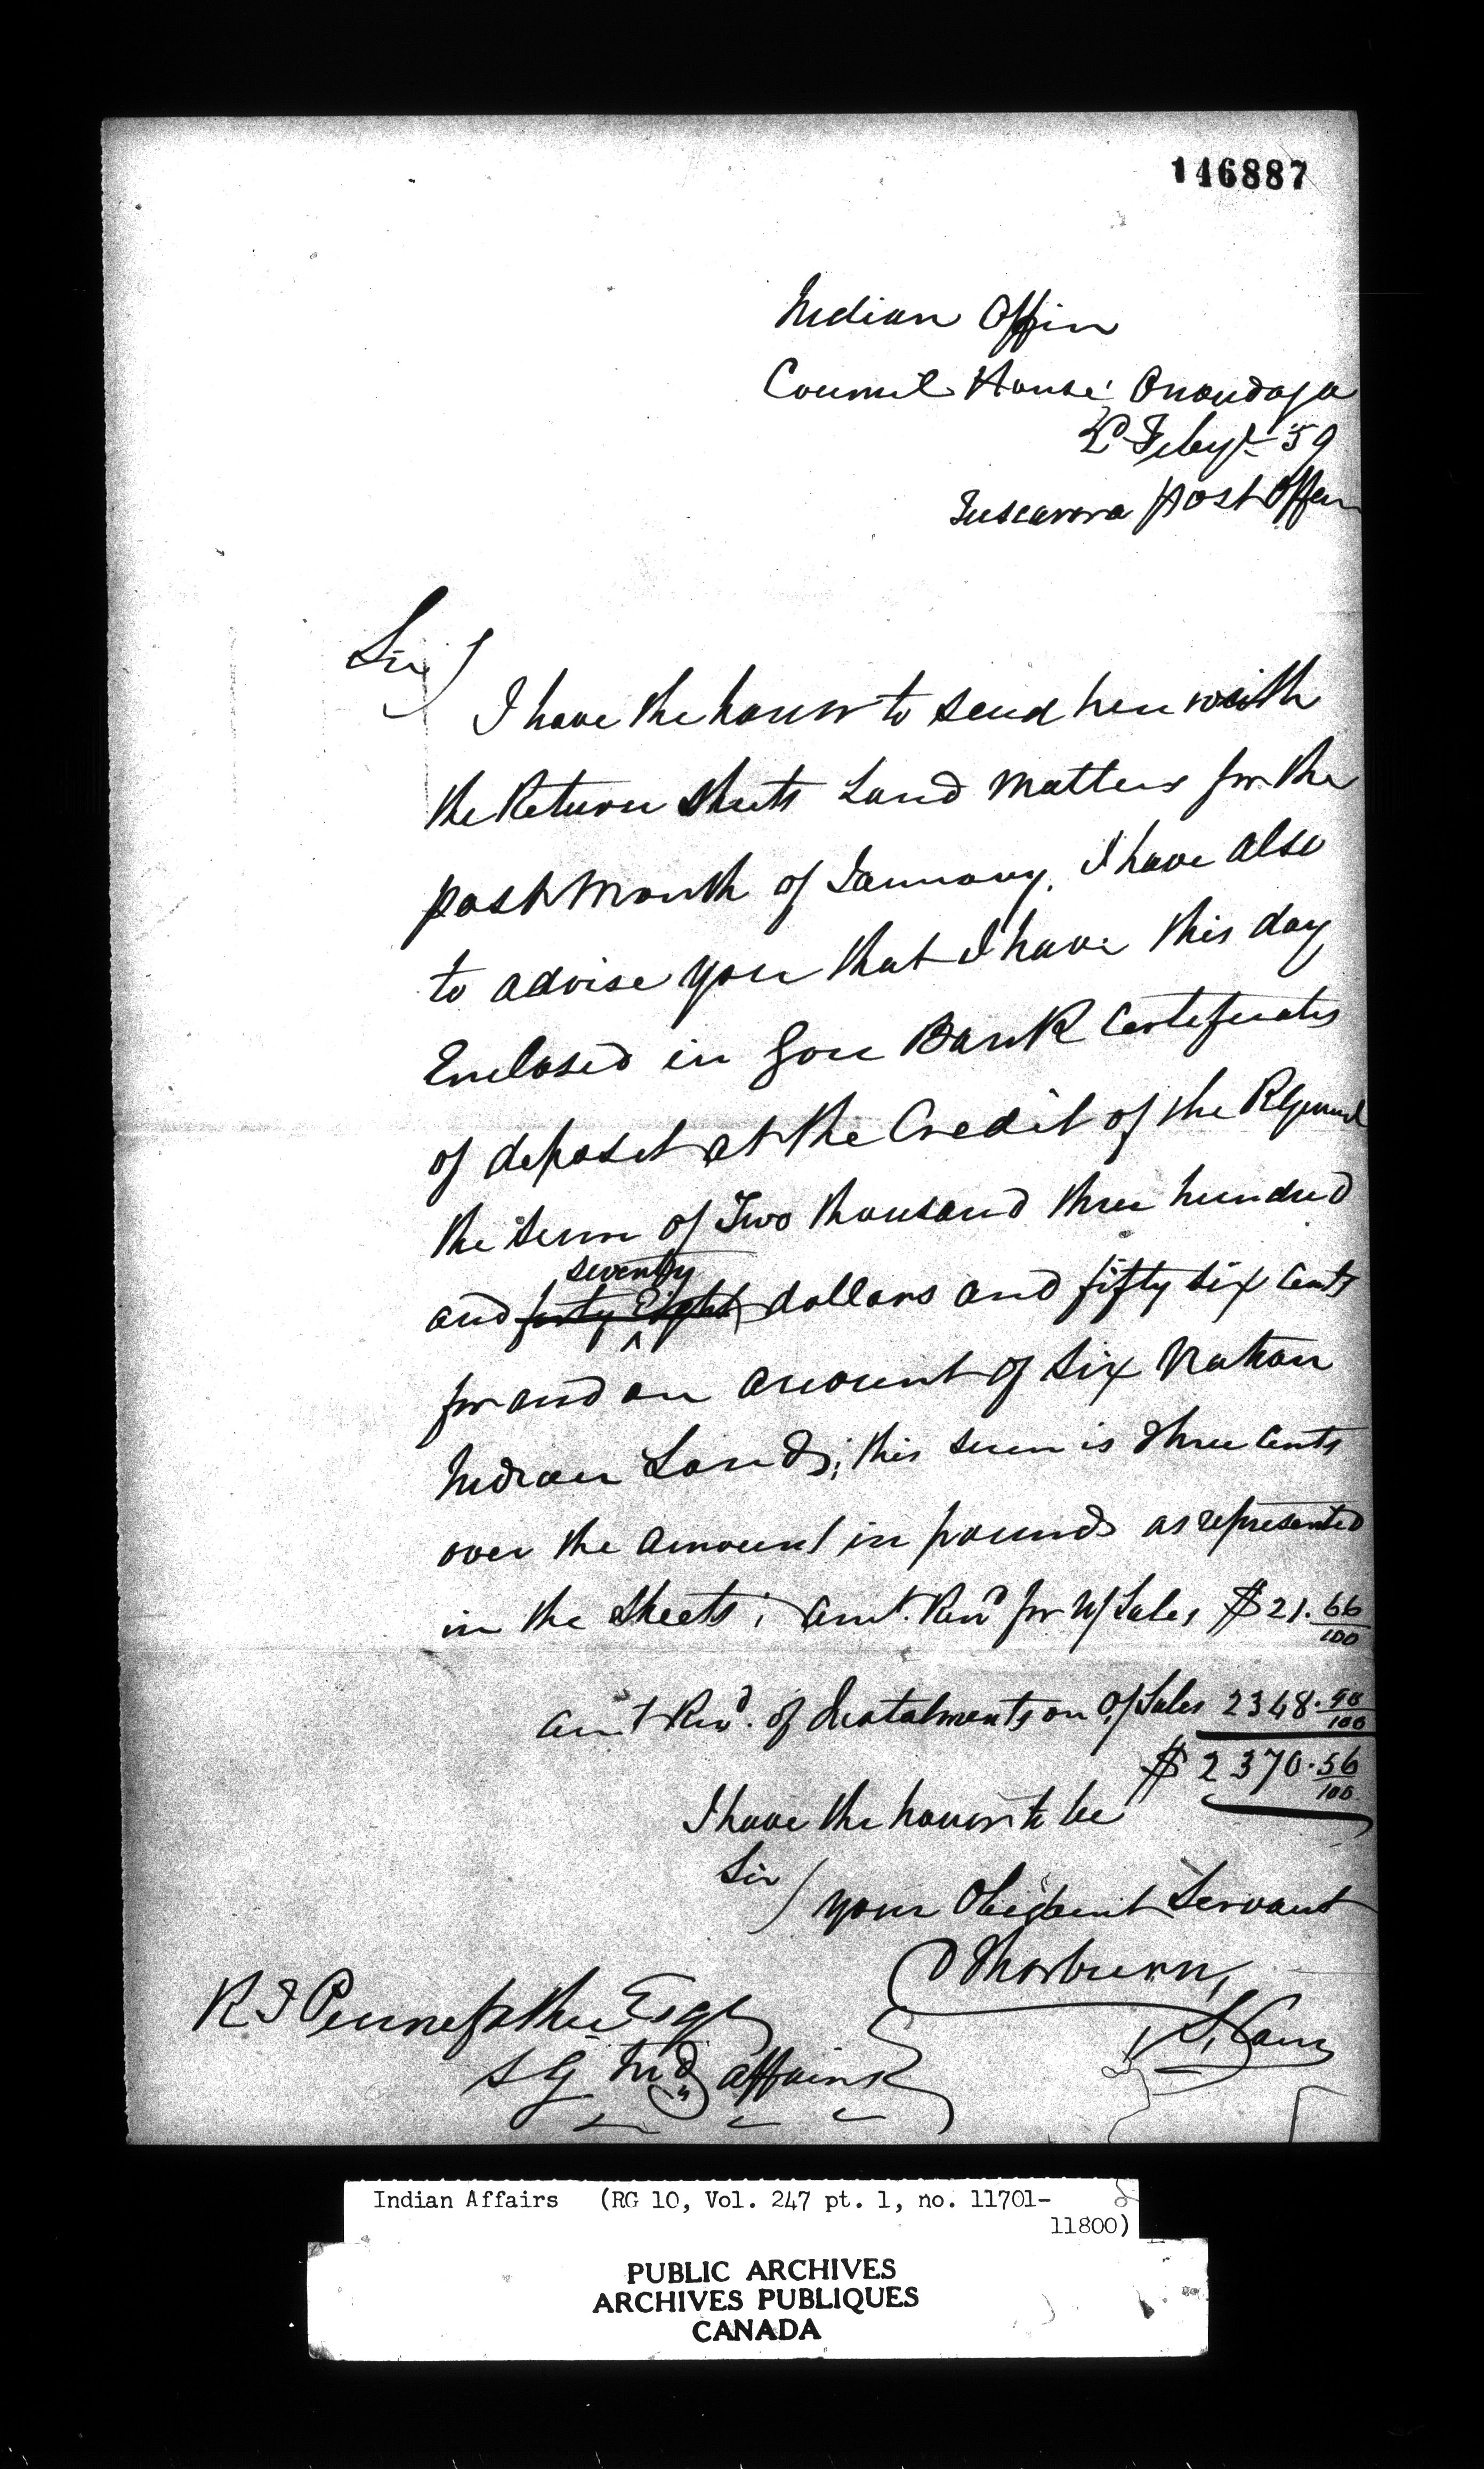 146887
Indian Office
Council House Onondaga
2d Feby 59
Tuscarora Post Office
Sir/
I have the honor to send herewith
the Return Sheets Land Matters for the
past Month of January. I have also
to advise you that I have this day
Enclosed in Gore Bank Certificates
of deposit at the Credit of the R General
the sum of Two thousand three hundred
seventy
and forty Eight dollars and fifty six cents
for and on account of Six Nation
Indian Lands; this sum is three cents
over the amount in pounds as represented
in the Sheets; amt. Recd for N/Sales $21.66/100
amt Recd. of Instalments on O/Sales 2348.90/100
$2370.56/100
I have the honor to be
Sir/
your Obedient Servant
D Thorburn,
R T Pennefather Esqr
S G Ind Affairs
Indian Affairs (RG 10, Vol. 247 pt. 1, no. 11701-
11800)
PUBLIC ARCHIVES
ARCHIVES PUBLIQUES
CANADA